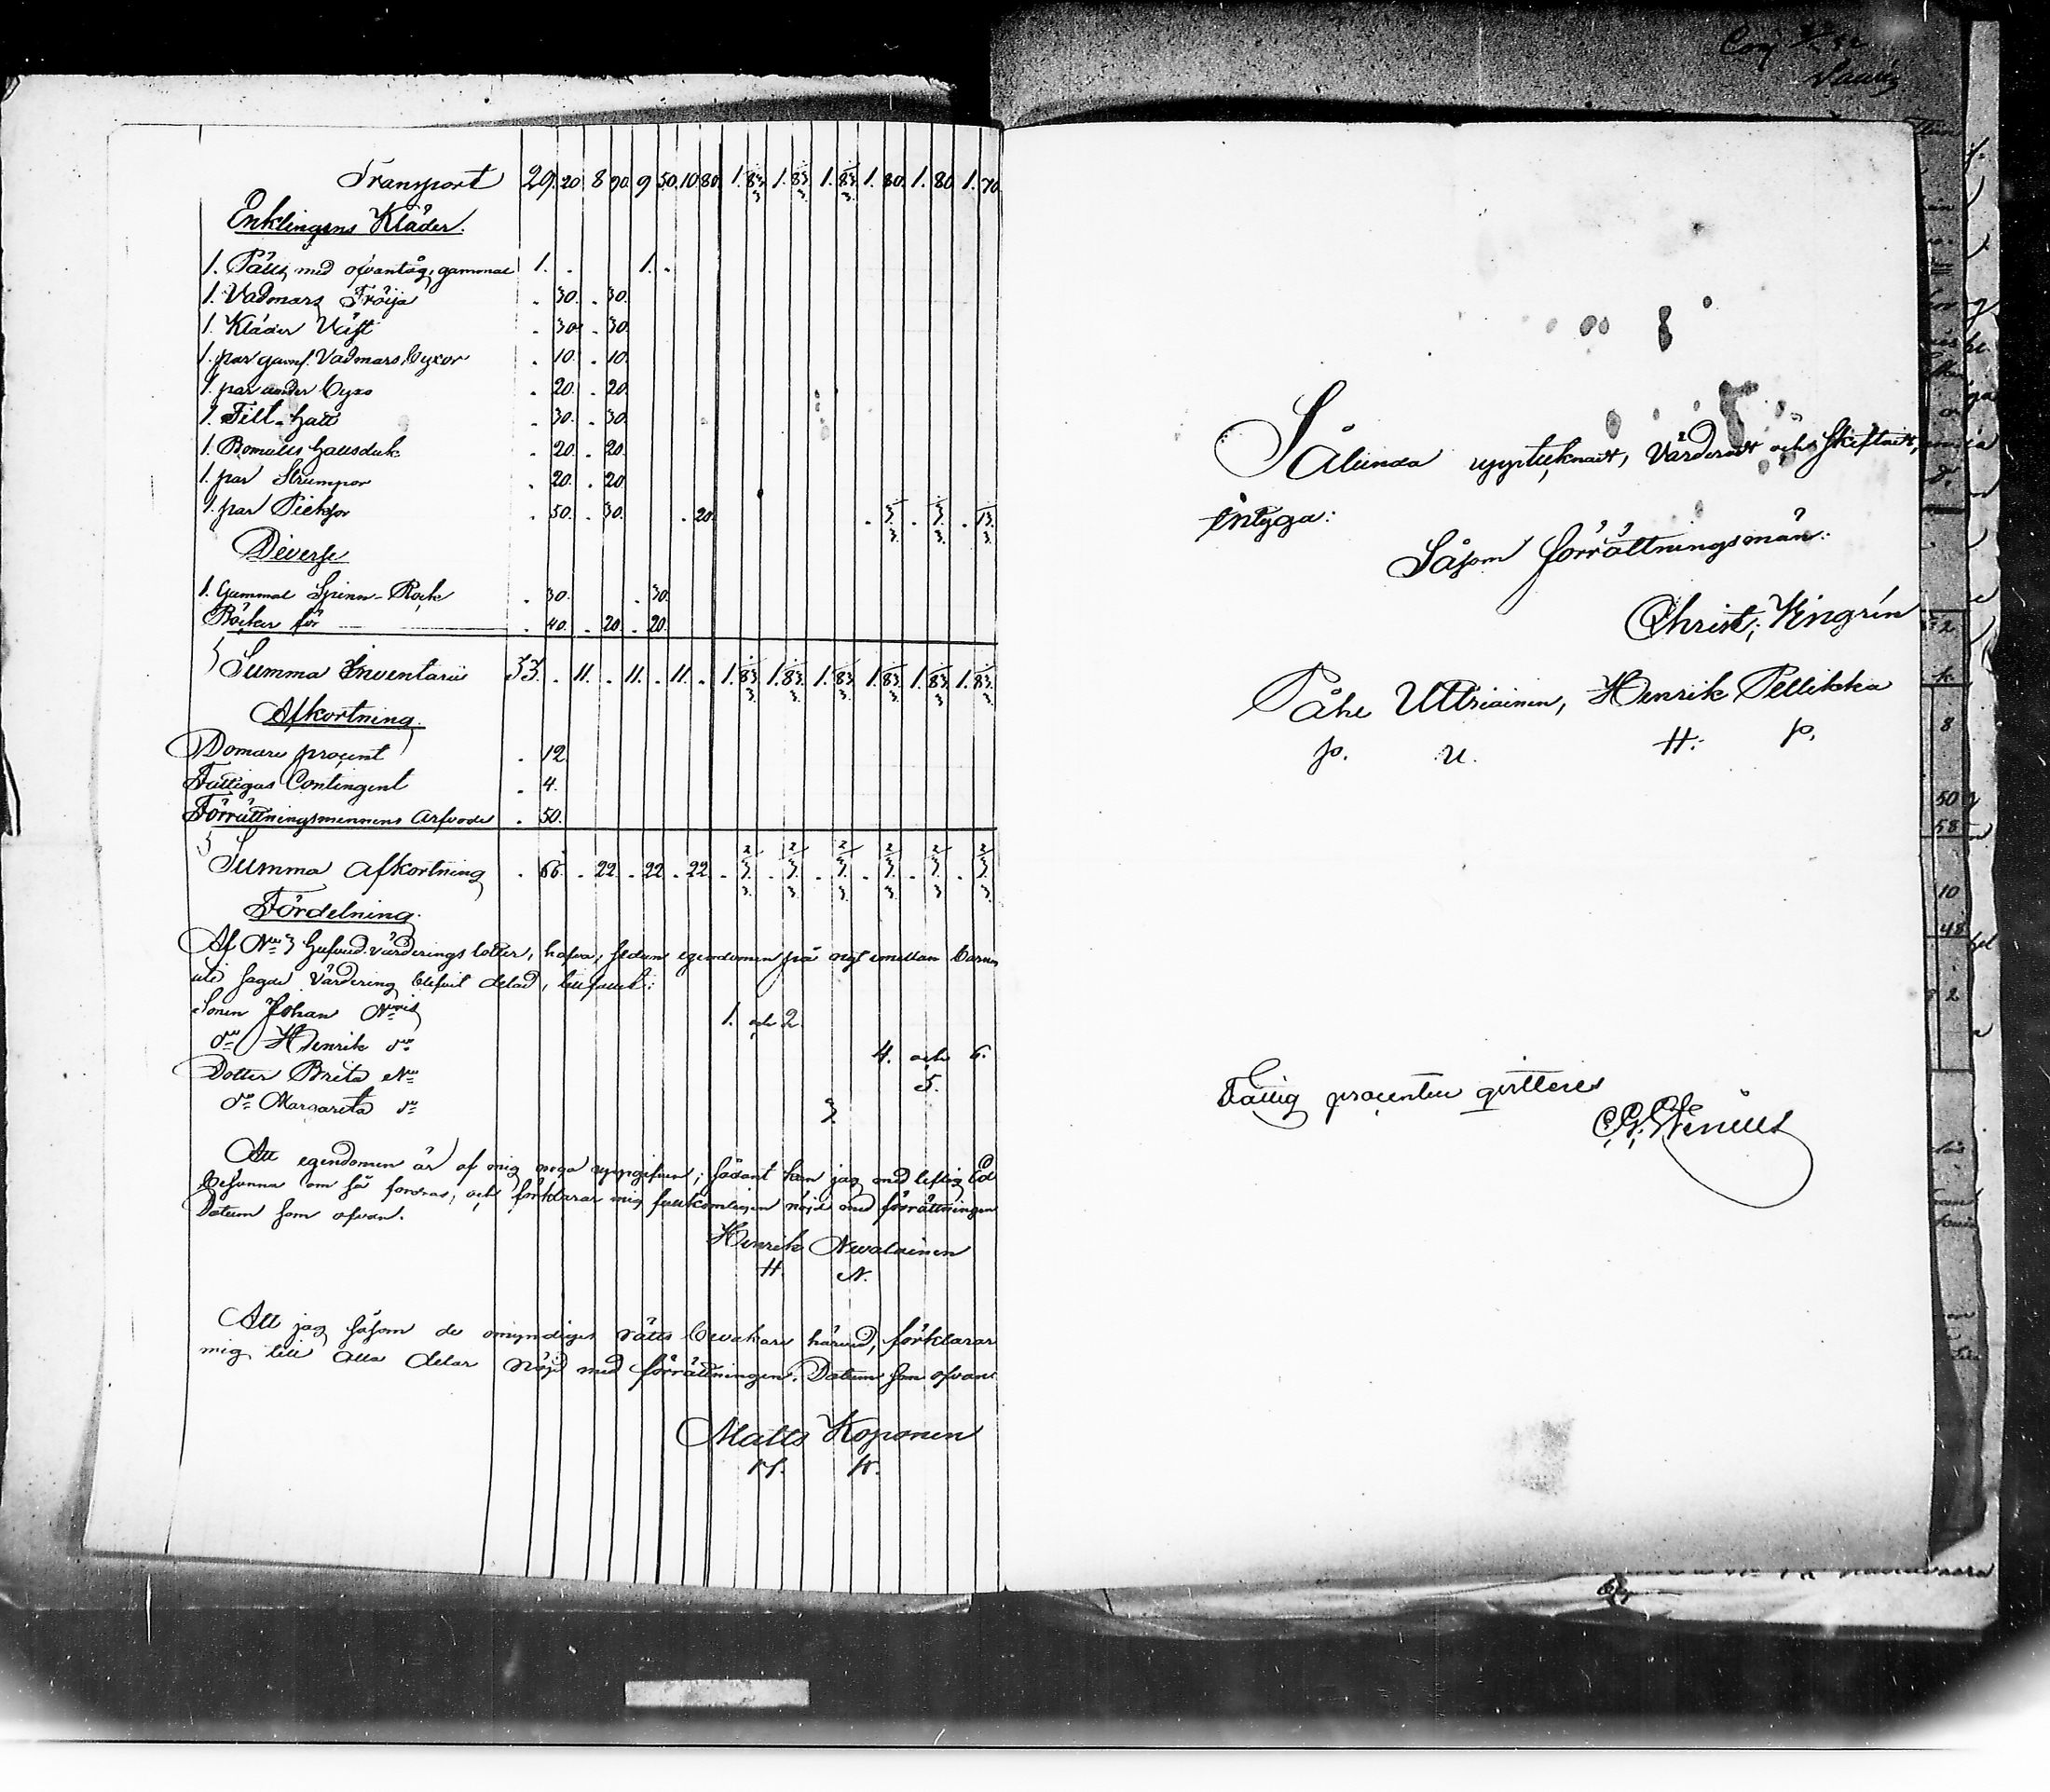 Transport 29. 20. 8 90. 9 50. 10. 80. 1. 83. 1. 83 1. 83. 1. 80. 1. 80 1. 70.
Enklingens Kläder.
1. Päls, med ofvantåg, gammal 1. . 1. .
1. Vadmars Tröija . 30. . 30.
1. Kläder Väst . 30. . 30.
1. par gaml. Vadmars Byxor . 10. . 10.
1. par under Byxo . 20. . 20.
1. Filt-hatt . 30. . 30.
1. Bomulls halsduk . 20. . 20.
1. par Strumpor . 20. . 20
1. par Pieksor . 50. . 30. . 20. . 3. . 3. . 13.
Diverse
1. Gammal Spinn-Rock . 30. . 30.
Böcker för . 40. . 20. . 20.
Summa Inventarii 33. . 11. . 11. . 11. . 1. 83. 1. 83. 1. 83. 1. 83. 1. 83. 1. 83.
Afkortning.
Domare procent . 12.
Fattigas Contingent . 4.
Förrättningsmennens Arfvode . 50.
Summa afkortning . 66. . 22. . 22 . 22
Fördelning.
Af N:o 3 hufvud värderings lotter, hafva, sedan egendomen på nytt emellan barnen
sagde värdering blifvit delad, tillfallit:
Sonen Johan N:ris 1. och 2.
d:o Henrik d:o 4. och 6.
Dotter Brita N:o 5.
d:o Margareta d:o 3.
Att egendomen är af mig noga uppgifven; sådant kan jag med liflig Ed
besanna om så fordras, och förklarar mig fullkomligen nöjd med förrättningen
Datum som ofvan.
Henrik Nevalainen
H. N.
Att jag såsom de omyndiges rätts bevakare härvid, förklarar
mig till alla delar nöjd med förrättningen. Datum som ofvan
Matts Koponen
M. K.
Sålunda upptecknadt, Värderadt och skiftadt,
intyga:
Såsom förrättningsmän:
Christ: Kingrén
Påhl Uttriainen, Henrik Pellikka
P. U. H. P.
Fattig procenten qvitteras